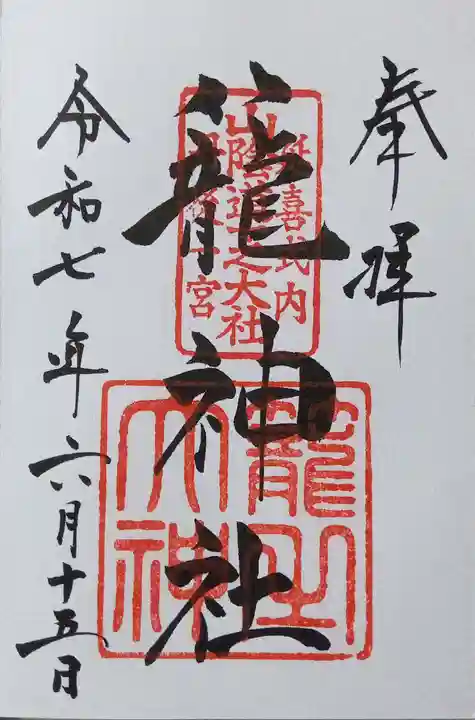 奉拝
延喜式内
山陰道一之大社
丹後一宮
籠神社
籠之大神
令和七年六月十五日